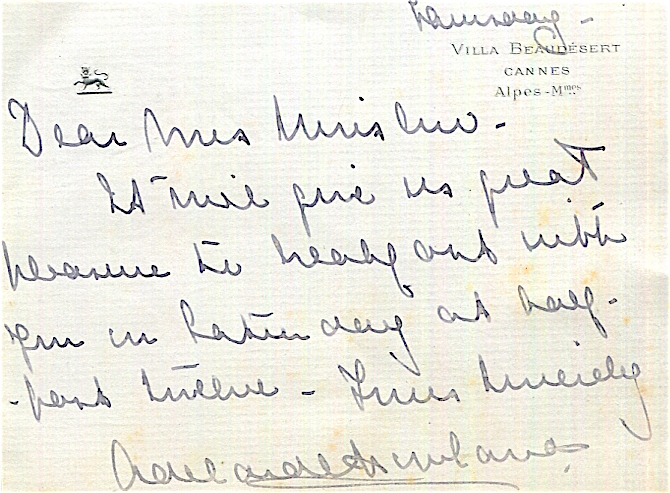 Thursday -
VILLA BEAUDÉSERT
CANNES
ALPES-Mmes
Dear
It will give us great
pleasure to with
you on Saturday at half-
-past twelve - Yours sincerely